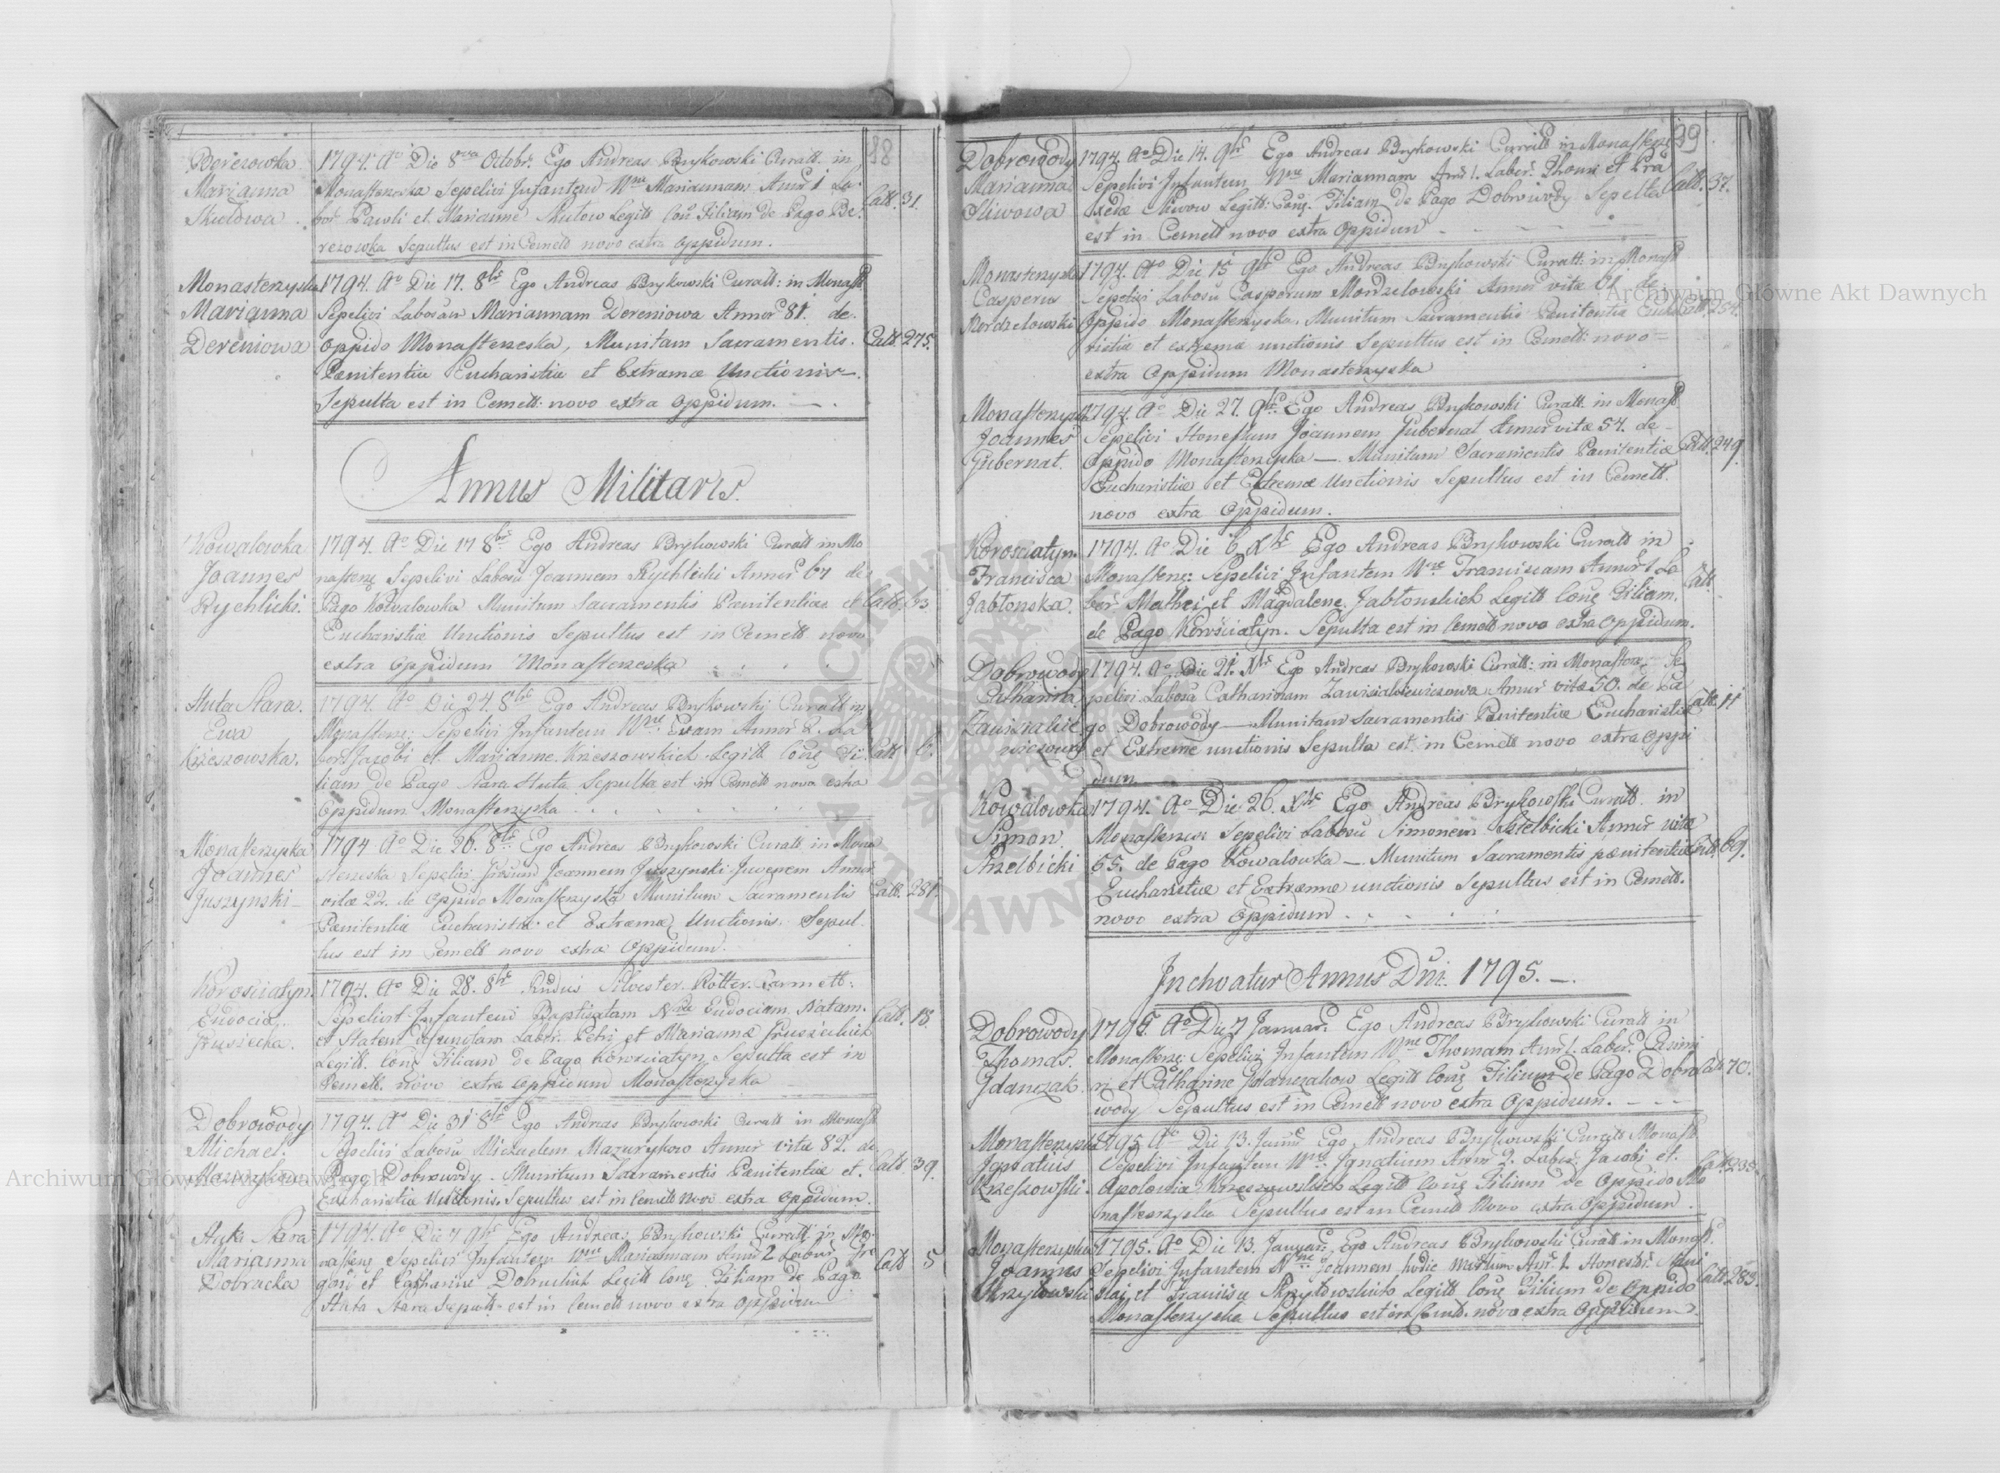 88
Berezowka
Marianna
Skutowa
1794. Ao Die 8va Octobr. Ego Andreas Brykowski Curatt. in
Monasterzeska Sepelivi Infantem Nne Mariannam Annor 1 La-
bor. Pawli et Marianne Skutow Legitt Conj Filiam de Pago Be-
rezowka Sepultus est in Cemett novo extra Oppidum.
Catt. 31.
Monasterzyska
Marianna
Dereniowa
1794. Ao Die 17. 8bris Ego Andreas Brykowski Curatt: in Monast
Sepelivi LaboSam Mariannam Dereniowa Annor 81. de.
Oppido Monasterzeska, Munitam Sacramentis.
Pænitentiæ Eucharistiæ et Extremæ Unctionis
Sepulta est in Cemett: novo extra Oppidum.
Catt 275.
Annus Militaris.
Kowalowka
Joannes
Rychlicki.
1794. Ao Die 17 8bris Ego Andreas Brykowski Curatt in Mo
nasterz Sepelivi Labosu Joannem Rychlicki Annor 67 de
Pago Kowalowka Munitum Sacramentis Pænitentiæ et
Eucharistiæ Unctionis Sepultus est in Cemett novo
extra Oppidum Monasterzeska
Catt.
Huta Stara.
Ewa
Krzeszowska.
1794. Ao Die 24. 8bris Ego Andreas Brykowski Curatt in
Monasterz: Sepelivi Infantem Nne Evam Annor 2. La
bor Jacobi et Marianne Krzeszowskich Legitt Conj Fi-
liam de Pago Stara Huta Sepulta est in Cemett novo extra
Oppidum Monasterzyska
Catt 6.
Monasterzyska
Joannes
Juszynski
1794 Ao Die 26. 8bris Ego Andreas Brykowski Curatt in Mona
sterzeska Sepelivi Joannem Juszynski Juvenem Annor
vitæ 22. de Oppido Monasterzyska Munitum Sacramentis
Pænitentiæ Eucharistiæ et Extremæ Unctionis. Sepul-
tus est in Cemett novo extra Oppidum.
Catt. 281.
Korosciatyn.
Eudocia.
1794. Ao Die 28. 8bris Silvester Rotter Carmett:
Sepelivit Infantem Baptisatam Nne Eudociam Natam
et Statem defunctam Labr: Petri et Mariannæ
Legitt. Conj Filiam de Pago Korosciatyn, Sepulta est in
Cemett. novo extra Oppidum Monasterzyska
Catt. 18.
Dobrowody
Michael
Mazurykow
1794. Ao Die 31 8bris Ego Andreas Brykowski Curatt in Monast
Sepelivi Labosu Michaelem Mazurykow Annor vitæ 82. de
Pago Dobrowody. Munitum Sacramentis Pænitentiæ et
Eucharistiæ Unctionis. Sepultus est in Cemett novo extra Oppidum.
Catt. 39.
Huta Stara
Marianna
Dobrucka
1794. Ao Die 7 9bris Ego Andreas Brykowski Curatt in Mo-
nasterz Sepelivi Infantem Nne Mariannam Annor 2 Labor Gre
gorj et Catharinæ Dobruckich Legitt Conj Filiam de Pago
Huta Stara Sepult est in Cemett novo extra Oppidum
Catt 5
99
Dobrowody
Marianna
Sliwowa
1794. Ao Die 14. 9bris Ego Andreas Brykowski Curatt in Monasterz
Sepelivi Infantem Nne Mariannam Annor 1. Labor. Thomæ et Pra
xedæ Sliwow Legitt: Conj. Filiam de Pago Dobrowody Sepulta
est in Cemett novo extra Oppidum
Catt. 37.
Monasterzyska
Casperus
Mordzelowski
1794. Ao Die 15 9bris Ego Andreas Brykowski Curatt: in Monast
Sepelivi Labosu Casperum Mordzelowski Annor vitæ 61 de
Oppido Monasterzyska. Munitum Sacramentis Pænitentiæ Eucha
ristiæ et extremæ unctionis Sepultus est in Cemett: novo
extra Oppidum Monasterzyska
Catt. 254.
Monasterzyska
Joannes
Gubernat.
1794. Ao Die 27. 9bris Ego Andreas Brykowski Curatt. in Monast
Sepelivi Honestum Joannem Gubernat Annor vitæ 57. de
Oppido Monasterzyska — Munitum Sacramentis Pænitentiæ
Eucharistiæ et Extremæ Unctionis Sepultus est in Cemett.
novo extra Oppidum.
Catt. 249.
Korosciatyn.
Francisca
Jabłonska.
1794. Ao Die 6 Xbris Ego Andreas Brykowski Curatt in
Monasterz: Sepelivi Infantem Nne Franciscam Annor 1 La
bor Mathei et Magdalene Jabłonskich Legitt Conj Filiam.
de Pago Korosciatyn. Sepulta est in Cemett novo extra Oppidum.
Catt.
Dobrowody
Catharina
Zawisalkie
wiczowa
1794. Ao Die 21. Xbris Ego Andreas Brykowski Curatt: in Monaster. Se
pelivi Labosa Catharinam Zawisalkiewiczowa Annor vitæ 50. de Pa
go Dobrowody — Munitam Sacramentis Pænitentiæ Eucharistiæ
et Extreme unctionis Sepulta est in Cemett novo extra Oppi
dum
Catt. 11
Kowalowka
Simon
Strzelbicki
1794. Ao Die 26. Xbris Ego Andreas Brykowski Curatt. in
Monasterz Sepelivi Labosu Simonem Strzelbicki Annor vitæ
65. de Pago Kowalowka — Munitum Sacramentis pænitentiæ
Eucharistiæ et Extremæ unctionis Sepultus est in Cemett.
novo extra Oppidum
Catt. 69.
Inchoatur Annus Dni. 1795.
Dobrowody
Thomas.
Gdanczak.
1795. Ao Die 7 Januar. Ego Andreas Brykowski Curatt in
Monasterz: Sepelivi Infantem Nne Thomam Annor 1. Labor. Casimi
ri et Catharine Gdanczakow Legitt Conj Filium de Pago Dobro
wody Sepultus est in Cemett novo extra Oppidum.
Catt 70.
Monasterzyska
Ignatius
Krzeszowski.
1795 Ao Die 13. Januar Ego Andreas Brykowski Curatt Monast.
Sepelivi Infantem Nne Ignatium Annor 2. Labor: Jacobi et
Apolonia Krzeszowskich Legitt Conj Filium de Oppido Mo
nasterzyska Sepultus est in Cemett novo extra Oppidum.
Catt. 235.
Monasterzyska
Joannes
1795. Ao Die 13. Januar. Ego Andreas Brykowski Curatt in Monast.
Sepelivi Infantem Nne Joannem hodie natum Annor 1. Honestor. Ni
colai et Francisca Legitt Conj Filium de Oppido
Monasterzyska Sepultus est in Cemet. novo extra Oppidum.
Catt. 283.
Archiwum Główne Akt Dawnych
Archiwum Główne Akt Dawnych
ARCHIWUM GŁÓWNE AKT DAWNYCH